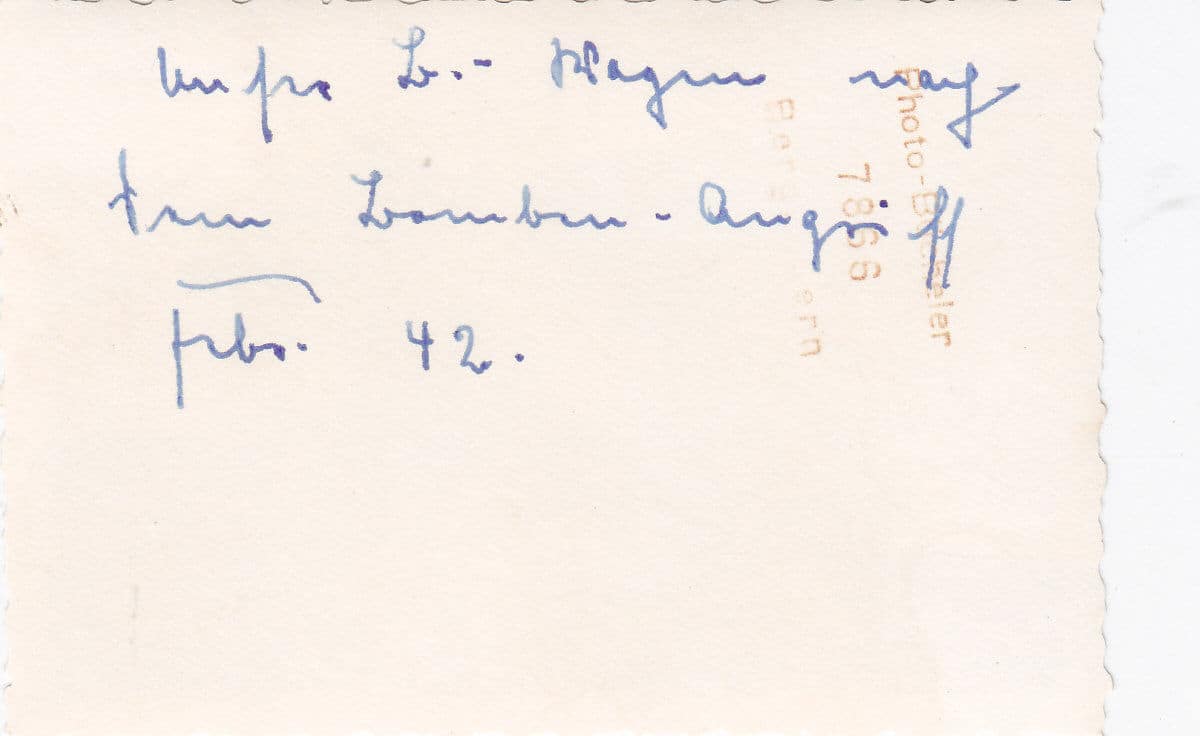 Unser B.- Wagen nach
dem Bomben-Angriff
Febr. 42.
Photo-
7866